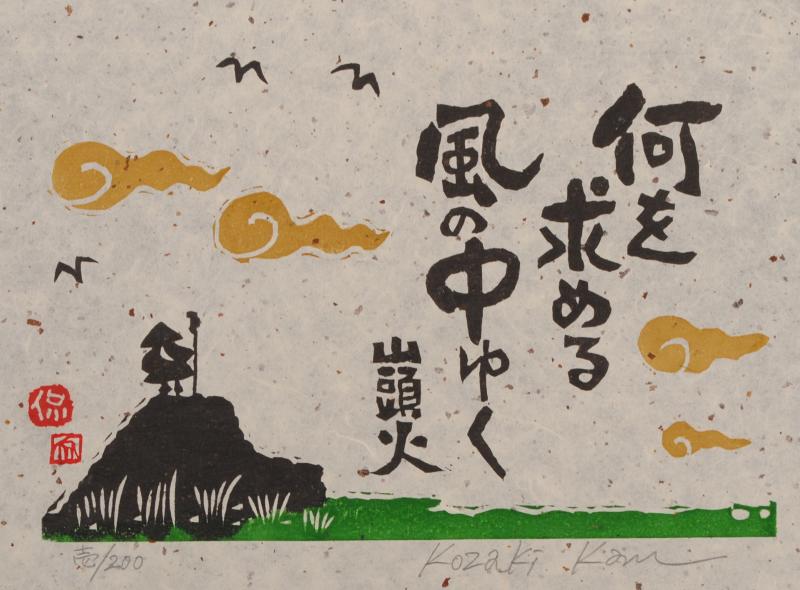 何を
求める
風の中ゆく
山頭火
保
壱/200
Kozaki Kan